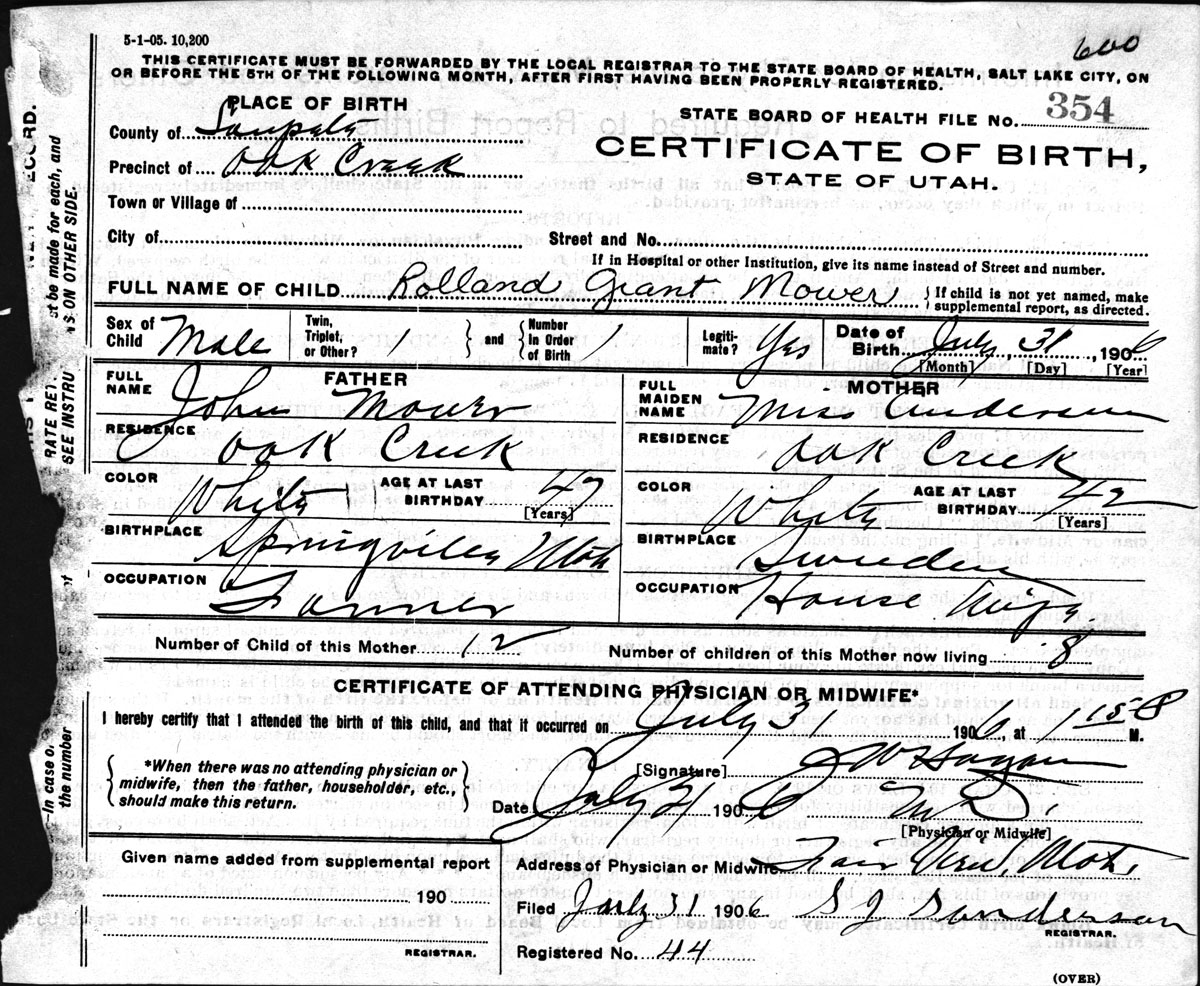 5-1-05. 10,200
600
THIS CERTIFICATE MUST BE FORWARDED BY THE LOCAL REGISTRAR TO THE STATE BOARD OF HEALTH, SALT LAKE CITY, ON
OR BEFORE THE 5TH OF THE FOLLOWING MONTH, AFTER FIRST HAVING BEEN PROPERLY REGISTERED.
PLACE OF BIRTH
STATE BOARD OF HEALTH FILE No. 354
County of Sanpete
CERTIFICATE OF BIRTH,
Precinct of Oak Creek
STATE OF UTAH.
Town or Village of
City of Street and No.
If in Hospital or other Institution, give its name instead of Street and number.
FULL NAME OF CHILD Rolland Grant Mower {If child is not yet named, make
supplemental report, as directed.
Sex of Child Male Twin, Triplet, or Other? 1 } and { Number in Order of Birth 1 Legitimate? Yes Date of Birth July, 31, 1906
[Month] [Day] [Year]
FATHER
FULL NAME John Mower
RESIDENCE Oak Creek
COLOR White AGE AT LAST BIRTHDAY 47
[Years]
BIRTHPLACE Springville Utah
OCCUPATION Farmer
MOTHER
FULL MAIDEN NAME Anderson
RESIDENCE Oak Creek
COLOR White AGE AT LAST BIRTHDAY 42
[Years]
BIRTHPLACE Sweden
OCCUPATION House Wife
Number of Child of this Mother 12 Number of children of this Mother now living 8
CERTIFICATE OF ATTENDING PHYSICIAN OR MIDWIFE*
I hereby certify that I attended the birth of this child, and that it occurred on July 31 1906, at 1 M.
*When there was no attending physician or
midwife, then the father, householder, etc.,
should make this return.
[Signature]
Date July 31 1906 M D
[Physician or Midwife]
Given name added from supplemental report
190
REGISTRAR.
Address of Physician or Midwife Utah
Filed July 31 1906
REGISTRAR.
Registered No. 44
(OVER)
RECORD.
st be made for each, and
NS ON OTHER SIDE.
RATE RET
SEE INSTRU
—In case of
the number